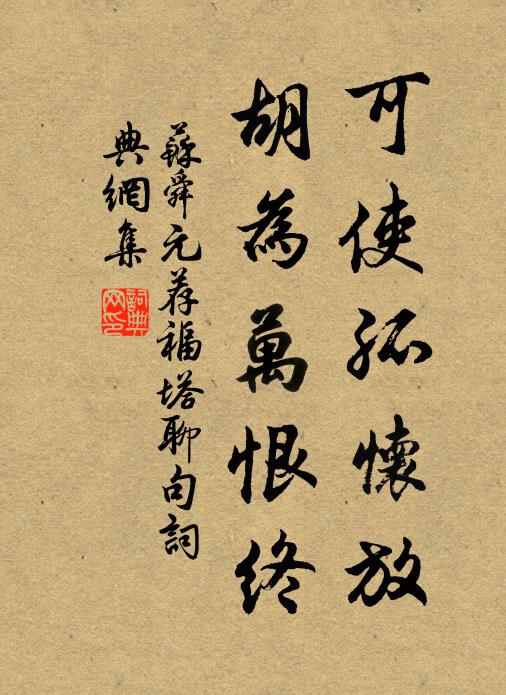 可使孤懷放
胡為萬恨終
蘇舜元荐福塔聊句詞
典網集
詞典網印